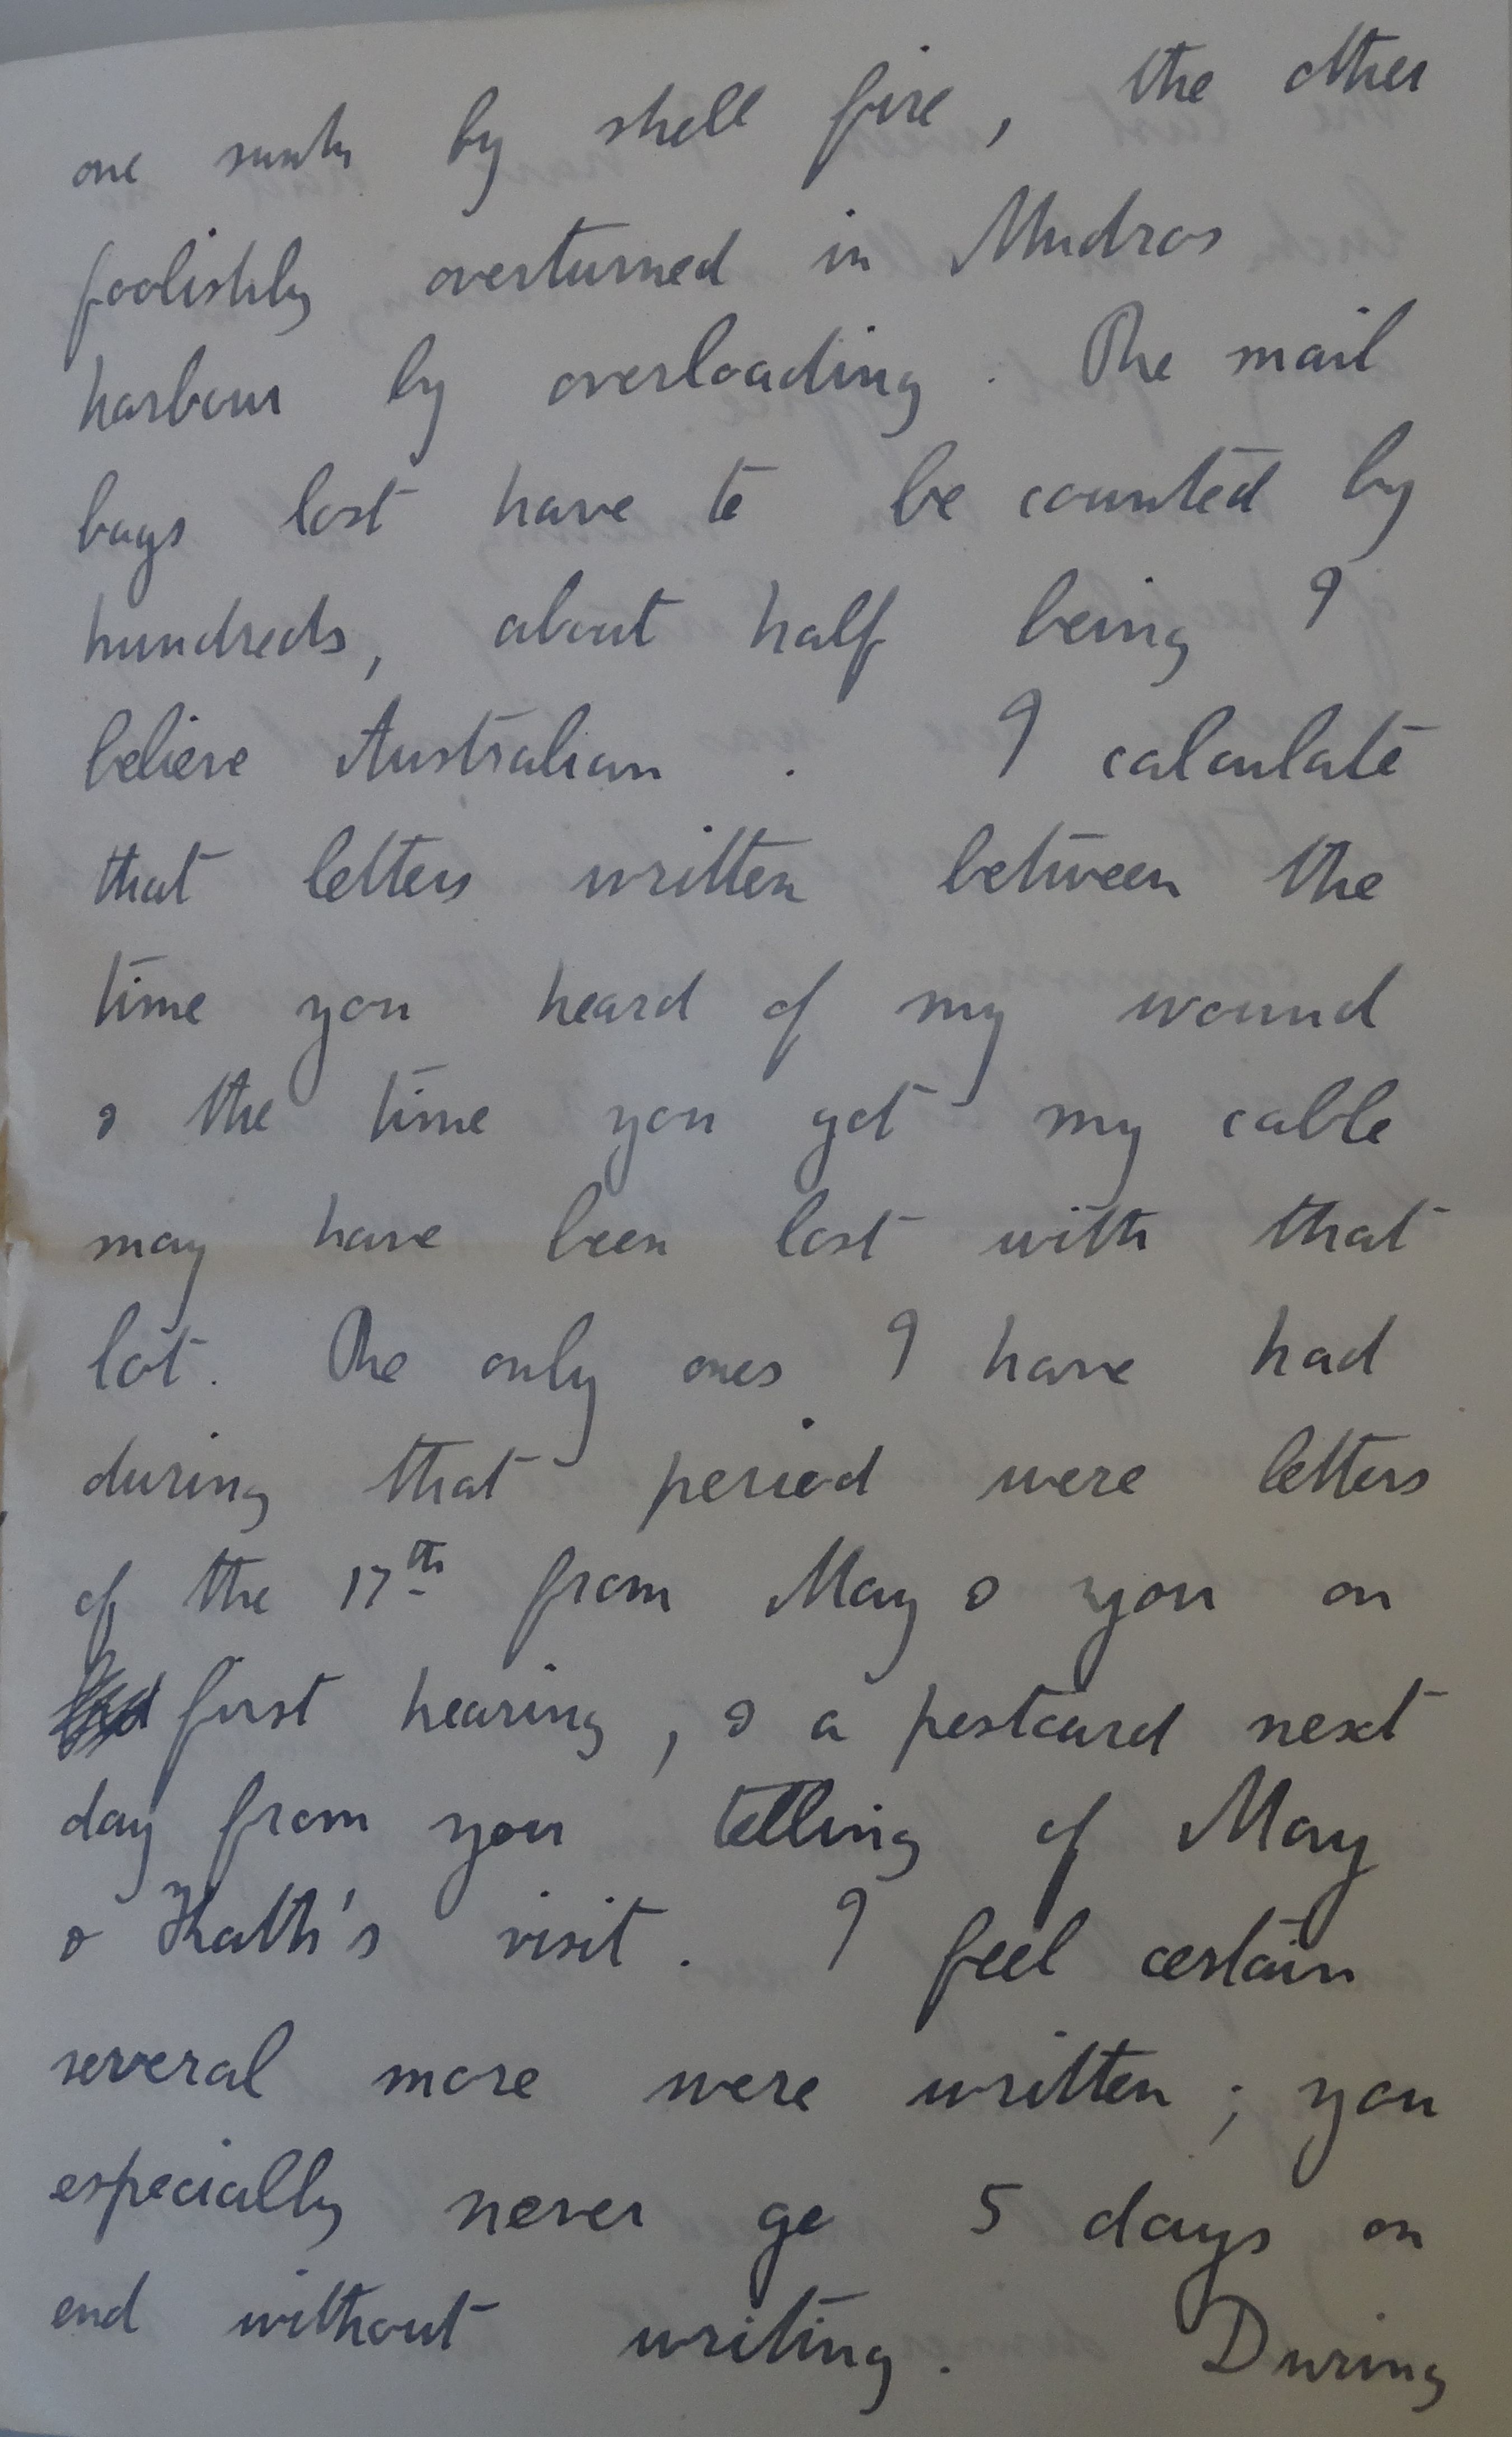 one sunk by shell fire, the other
foolishly overturned in Mudros
harbour by overloading. The mail
bags lost have to be counted by
hundreds, about half being I
believe Australian. I calculate
that letters written between the
time you heard of my wound
& the time you got my cable
may have been lost with that
lot. The only ones I have had
during that period were letters
of the 17th from May & you on
first hearing, & a postcard next
day from you telling of May
& Kath's visit. I feel certain
several more were written; you
especially never go 5 days on
end without writing. During